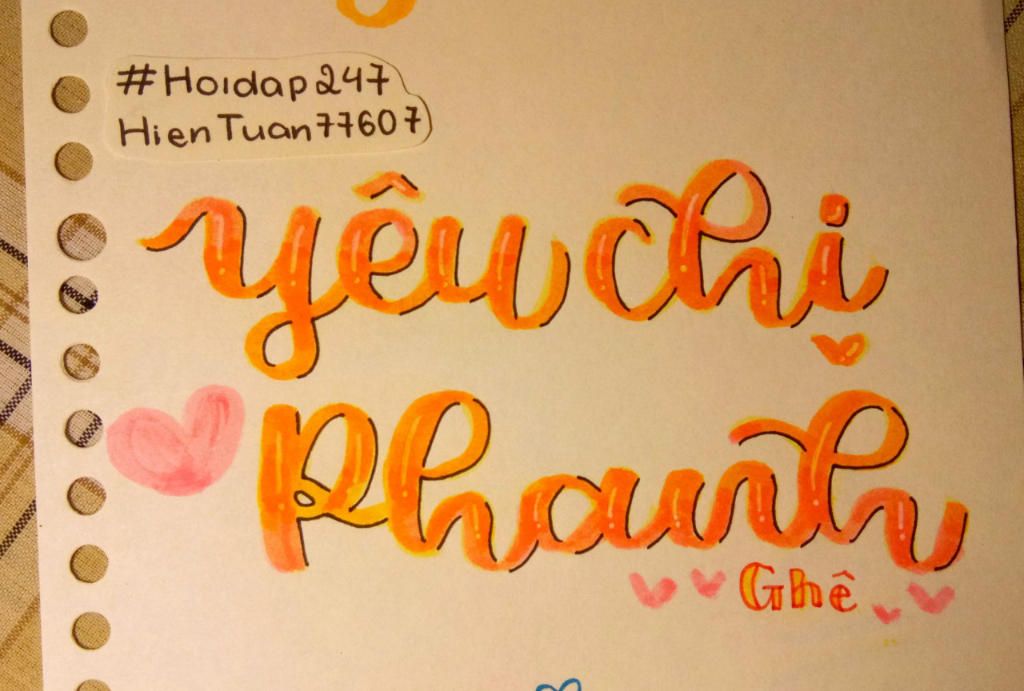 #Hoidap247
HienTuan77607
yêu chị
Phanh
Ghê